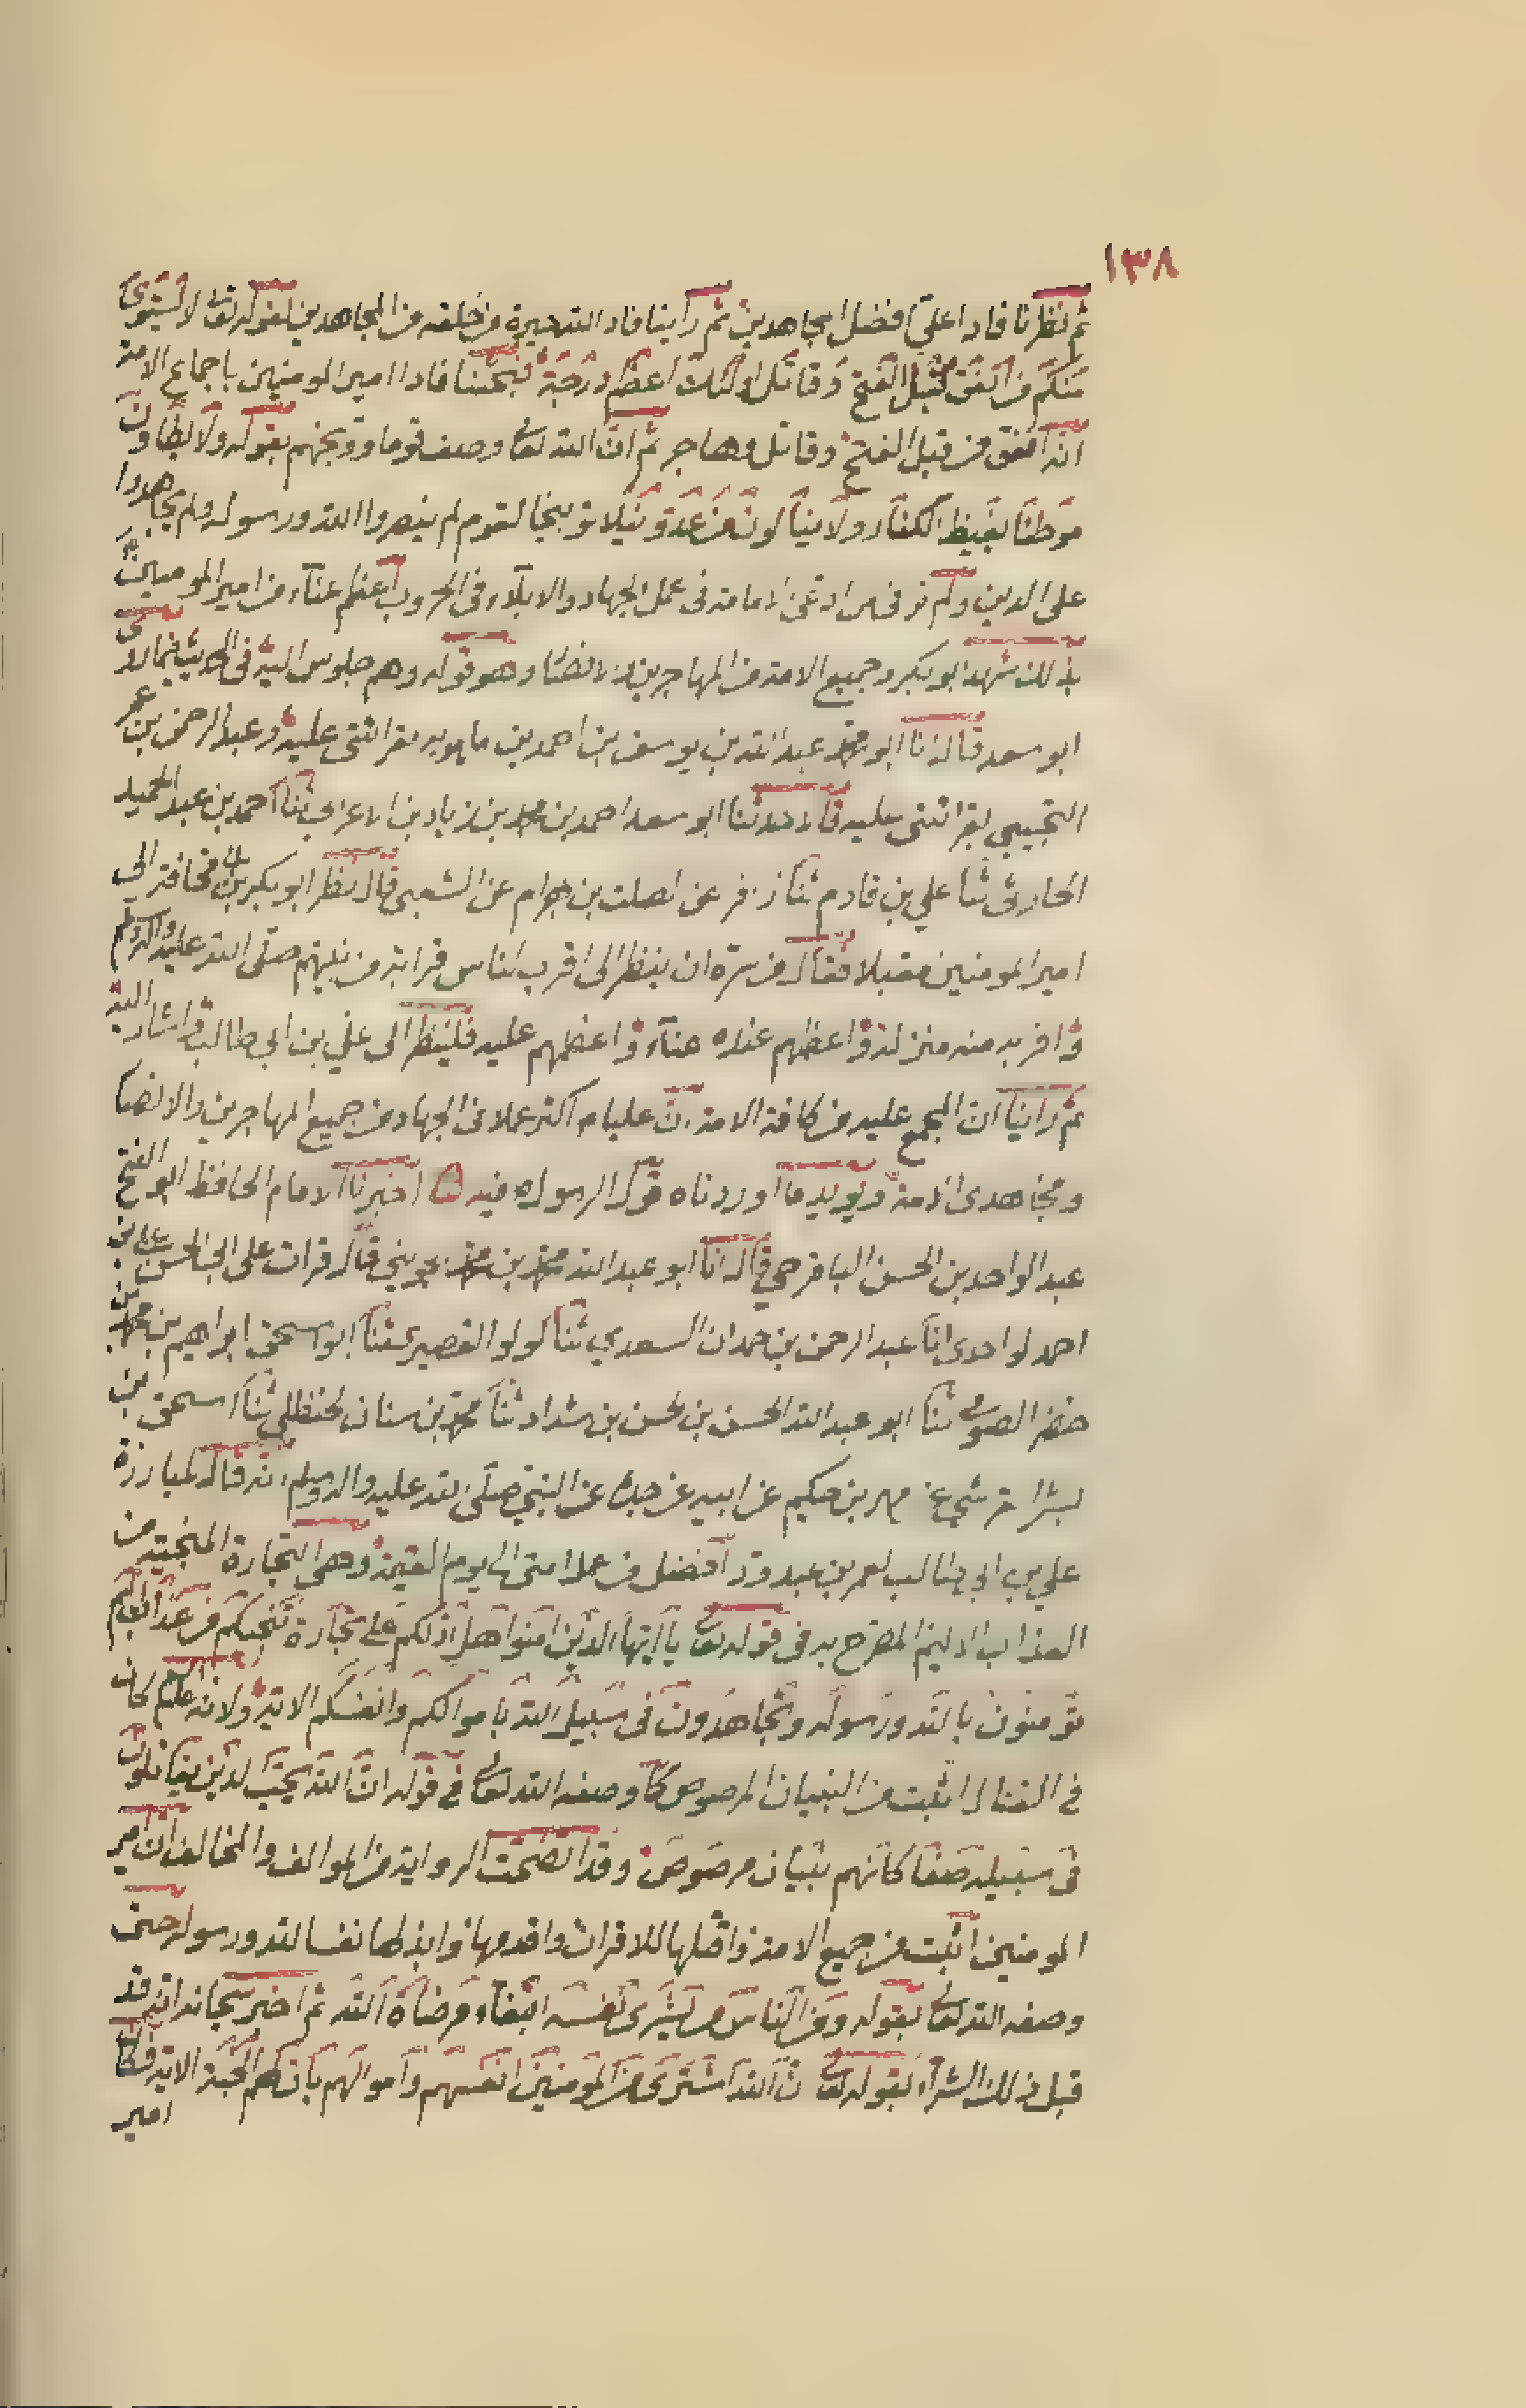 ١٣٨
ثم نظرنا فاذا علي افضل المجاهدين ثم راينا فاذا الله خيرة من خلقه من المجاهدين لقوله تعالى لا يستوى
منكم من انفق من قبل الفتح وقاتل اولئك اعظم درجة فبحثنا فاذا امير المومنين باجماع الامة
انه انفق من قبل الفتح وقاتل وهاجر ثم ان الله تعالى وصف قوما ووبخهم بقوله ولا يطاون
موطئا يغيظ الكفار ولا ينالون من عدو نيلا توبيخا لقوم لم ينصروا الله ورسوله ولم يجاهدوا
على الدين ولم نر فى من ادعى الامامة فى عمل الجهاد والابلاء فى الحروب اعظم عناء من امير المومنين
بذلك شهد ابو بكر وجميع الامة من المهاجرين والانصار وهو قوله وهم جلوس اليه فى الحديث فيما
ابو سعد قال انا ابو محمد عبد الله بن يوسف بن احمد بن مامويه بقرائتى عليه وعبد الرحمن بن عمر
التجيبي بقرائتى عليه قالا حدثنا ابو سعد احمد بن محمد بن زياد بن الاعرابي ثنا احمد بن عبد الحميد
الحارثى ثنا علي بن قادم ثنا زفر عن الصلت بن بهرام عن الشعبى قال نظر ابو بكر بن ابي قحافة الي
امير المومنين مقبلا فقال من سره ان ينظر الى اقرب الناس قرابة من نبيهم صلى الله عليه واله وسلم
واقربه منه منزلة واعظمهم عنده عناء واعظمهم عليه فلينظر الى علي بن ابي طالب واشار اليه
ثم راينا ان المجمع عليه من كافة الامة ان عليا م اكثر عملا فى الجهاد من جميع المهاجرين والانصار
ومجاهدى الامة ويويد ما اوردناه قول الرسول ص فيه اخبرنا الامام الحافظ ابو الفتح
عبد الواحد بن الحسن الباقرحي قال انا ابو عبد الله محمد بن محمد جويني قال قرات على ابي الحسن علي بن
احمد الواحدى انا عبد الرحمن بن حمدان السعدي ثنا لولو القصيرى ثنا ابو اسحق ابراهيم بن محمد بن
خضر الصوفى ثنا ابو عبد الله الحسن بن الحسن بن شداد ثنا محمد بن سنان الحنظلي ثنا اسحق بن
بشر القرشي عن بهز بن حكيم عن ابيه عن جده عن النبي صلى الله عليه واله وسلم انه قال لمبارزة
علي بن ابي طالب لعمرو بن عبدود افضل من عمل امتى الى يوم القيمة وهى التجارة المنجية من
العذاب الاليم المصرح به فى قوله تعالى يا ايها الذين امنوا هل ادلكم على تجارة تنجيكم من عذاب اليم
تومنون بالله ورسوله وتجاهدون فى سبيل الله باموالكم وانفسكم الاية ولانه عليه السلم كان
في القتال اثبت من البنيان المرصوص كما وصفه الله تعالى في قوله ان الله يحب الذين يقاتلون
فى سبيله صفا كانهم بنيان مرصوص وقد اتضحت الرواية من الموالف والمخالف ان امير
المومنين اثبت من جميع الامة واقتلها للاقران واقدمها وابذلها نفسا لله ورسوله حتى
وصفه الله تعالى بقوله ومن الناس من يشرى نفسه ابتغاء مرضاة الله ثم اخبر سبحانه انه قد
قبل ذلك الشراء بقوله تعالى ان الله اشترى من المومنين انفسهم واموالهم بان لهم الجنة الاية فكان
امير